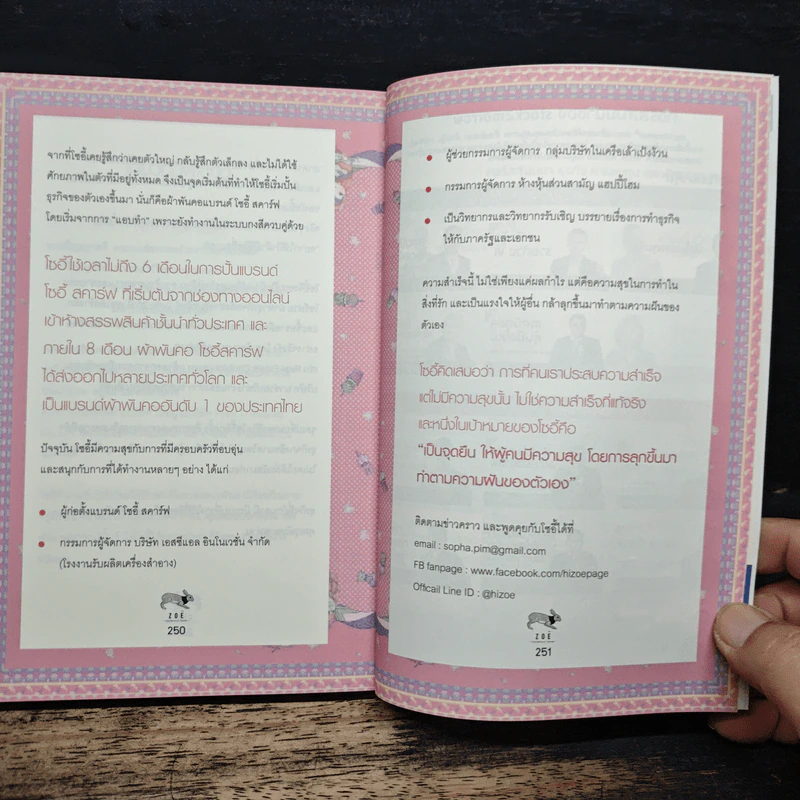 จากที่โซอี้เคยรู้สึกว่าเคยตัวใหญ่ กลับรู้สึกตัวเล็กลง และไม่ได้ใช้
ศักยภาพในตัวที่มีอยู่ทั้งหมด จึงเป็นจุดเริ่มต้นที่ทำให้โซอี้เริ่มปั้น
ธุรกิจของตัวเองขึ้นมา นั่นก็คือผ้าพันคอแบรนด์ โซอี้ สคาร์ฟ
โดยเริ่มจากการ "แอบทำ" เพราะยังทำงานในระบบกงสีควบคู่ด้วย
โซอี้ใช้เวลาไม่ถึง 6 เดือนในการปั้นแบรนด์
โซอี้ สคาร์ฟ ที่เริ่มต้นจากช่องทางออนไลน์
เข้าห้างสรรพสินค้าชั้นนำทั่วประเทศ และ
ภายใน 8 เดือน ผ้าพันคอ โซอี้สคาร์ฟ
ได้ส่งออกไปหลายประเทศทั่วโลก และ
เป็นแบรนด์ผ้าพันคออันดับ 1 ของประเทศไทย
ปัจจุบัน โซอี้มีความสุขกับการที่มีครอบครัวที่อบอุ่น
และสนุกกับการที่ได้ทำงานหลายๆ อย่าง ได้แก่
● ผู้ก่อตั้งแบรนด์ โซอี้ สคาร์ฟ
● กรรมการผู้จัดการ บริษัท เอสซีแอล อินโนเวชั่น จำกัด
(โรงงานรับผลิตเครื่องสำอาง)
ZOE
250
● ผู้ช่วยกรรมการผู้จัดการ กลุ่มบริษัทในเครือเล้าเป้งง้วน
● กรรมการผู้จัดการ ห้างหุ้นส่วนสามัญ แฮปปี้โฮม
● เป็นวิทยากรและวิทยากรรับเชิญ บรรยายเรื่องการทำธุรกิจ
ให้กับภาครัฐและเอกชน
ความสำเร็จนี้ ไม่ใช่เพียงแค่ผลกำไร แต่คือความสุขในการทำใน
สิ่งที่รัก และเป็นแรงใจให้ผู้อื่น กล้าลุกขึ้นมาทำตามความฝันของ
ตัวเอง
โซอี้คิดเสมอว่า การที่คนเราประสบความสำเร็จ
แต่ไม่มีความสุขนั้น ไม่ใช่ความสำเร็จที่แท้จริง
และหนึ่งในเป้าหมายของโซอี้คือ
"เป็นจุดยืน ให้ผู้คนมีความสุข โดยการลุกขึ้นมา
ทำตามความฝันของตัวเอง"
ติดตามข่าวคราว และพูดคุยกับโซอี้ได้ที่
email : sopha.pim@gmail.com
FB fanpage : www.facebook.com/hizoepage
Offcail Line ID : @hizoe
ZOE
251